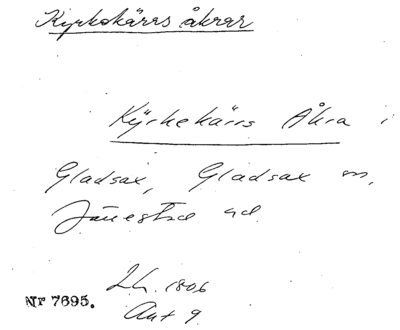 Kyrkokärrs åkrar
Kÿrkekärrs Åkra i
Gladsax, Gladsax sn,
Järrestad ad.
Lh. 1806
Akt 9
Nr 7695.